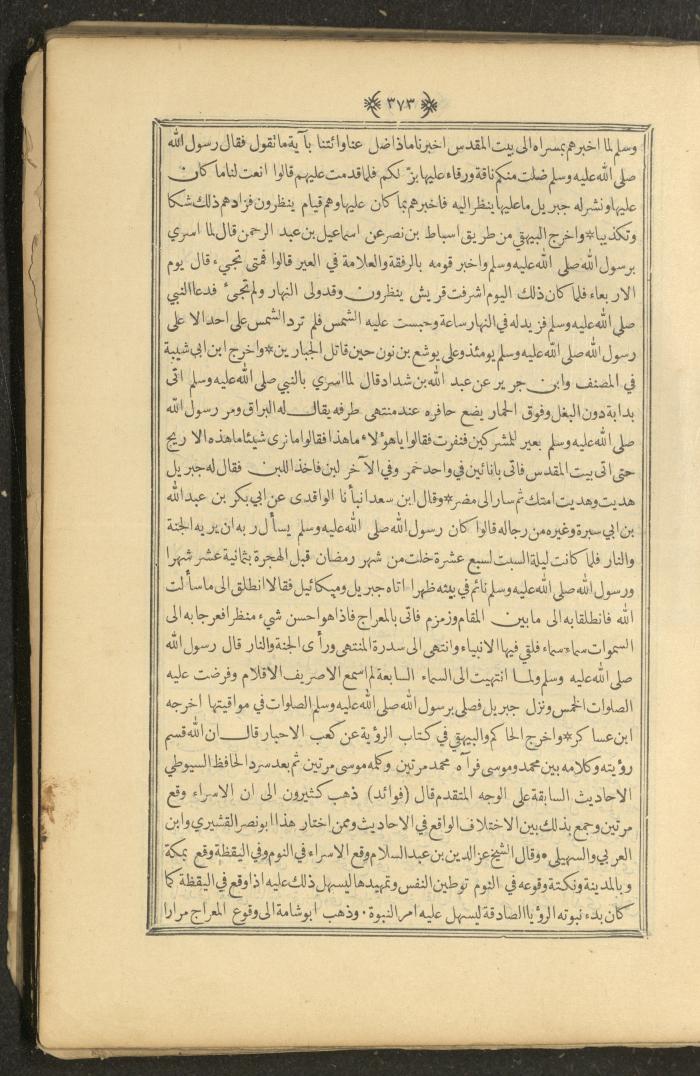 ﴿٣٧٣﴾
وسلم لما اخبرهم بمسراه الى بيت المقدس اخبرنا ماذا ضل عنا وائتنا بآية ما نقول فقال رسول الله
صلى الله عليه وسلم ضلت منكم ناقة ورقاء عليها بز لكم فلما قدمت عليهم قالوا انعت لنا ما كان
عليها ونشر له جبريل ما عليها ينظر اليه فاخبرهم بما كان عليها وهم قيام ينظرون فزادهم ذلك شكا
وتكذيبا * واخرج البيهقي من طريق اسباط بن نصر عن اسماعيل بن عبد الرحمن قال لما اسري
برسول الله صلى الله عليه وسلم واخبر قومه بالرفقة والعلامة في العير قالوا فمتى تجيء قال يوم
الاربعاء فلما كان ذلك اليوم اشرفت قريش ينظرون وقد ولى النهار ولم تجئ فدعا النبي
صلى الله عليه وسلم فزيد له في النهار ساعة وحبست عليه الشمس فلم ترد الشمس على احد الا على
رسول الله صلى الله عليه وسلم يومئذ وعلى يوشع بن نون حين قاتل الجبارين * واخرج ابن ابي شيبة
في المصنف وابن جرير عن عبد الله بن شداد قال لما اسري بالنبي صلى الله عليه وسلم اتى
بدابة دون البغل وفوق الحمار يضع حافره عند منتهى طرفه يقال له البراق ومر رسول الله
صلى الله عليه وسلم بعير للمشركين فنفرت فقالوا يا هؤلاء ما هذا فقالوا ما نرى شيئا ما هذه الا ريح
حتى اتى بيت المقدس فاتى بانائين في واحد خمر وفي الآخر لبن فاخذ اللبن فقال له جبريل
هديت وهديت امتك ثم سار الى مضر * وقال ابن سعد انبأنا الواقدى عن ابي بكر بن عبد الله
بن ابي سبرة وغيره من رجاله قالوا كان رسول الله صلى الله عليه وسلم يسأل ربه ان يريه الجنة
والنار فلما كانت ليلة السبت لسبع عشرة خلت من شهر رمضان قبل الهجرة بثمانية عشر شهرا
ورسول الله صلى الله عليه وسلم نائم في بيته ظهرا اتاه جبريل وميكائيل فقالا انطلق الى ما سألت
الله فانطلقا به الى ما بين المقام وزمزم فاتى بالمعراج فاذا هو احسن شيء منظرا فعرجا به الى
السموات سماء سماء فلقي فيها الانبياء وانتهى الى سدرة المنتهى ورأى الجنة والنار قال رسول الله
صلى الله عليه وسلم ولما انتهيت الى السماء السابعة لم اسمع الا صريف الاقلام وفرضت عليه
الصلوات الخمس ونزل جبريل فصلى برسول الله صلى الله عليه وسلم الصلوات في مواقيتها اخرجه
ابن عساكر * واخرج الحاكم والبيهقي في كتاب الرؤية عن كعب الاحبار قال ان الله قسم
رؤيته وكلامه بين محمد وموسى فرآه محمد مرتين وكلمه موسى مرتين ثم بعد سرد الحافظ السيوطي
الاحاديث السابقة على الوجه المتقدم قال (فوائد) ذهب كثيرون الى ان الاسراء وقع
مرتين وجمع بذلك بين الاختلاف الواقع في الاحاديث وممن اختار هذا ابو نصر القشيري وابن
العربي والسهيلي * وقال الشيخ عز الدين بن عبد السلام وقع الاسراء في النوم وفي اليقظة وقع بمكة
وبالمدينة ونكتة وقوعه في النوم توطين النفس وتمهيدها ليسهل ذلك عليه اذا وقع في اليقظة كما
كان بدء نبوته الرؤيا الصادقة ليسهل عليه امر النبوة . وذهب ابو شامة الى وقوع المعراج مرارا